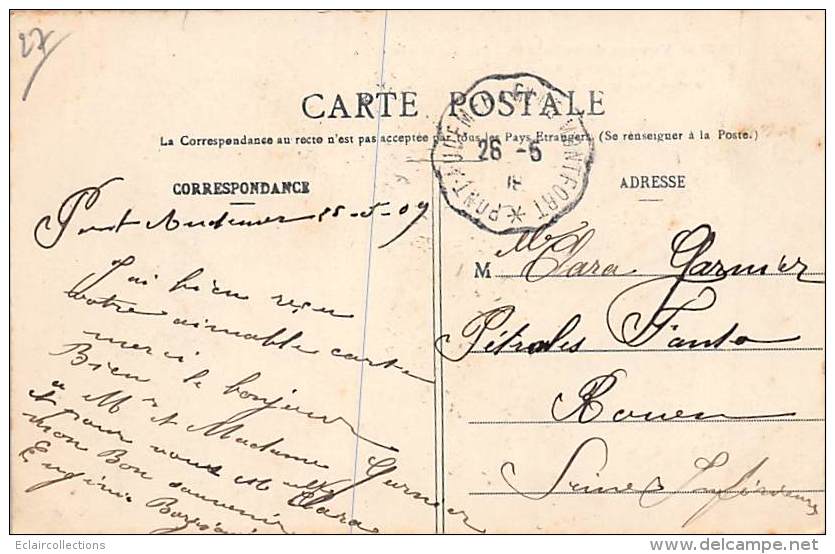 27
CARTE POSTALE
La Correspondance au recto n'est pas acceptée par tous les Pays Etrangers. (Se renseigner à la Poste.)
CORRESPONDANCE
ADRESSE
PONT-AUDEMER MONTFORT *
26 -5
Pont Audemer 25-5-09
J'ai bien reçu
votre aimable carte
merci le bonjour
Bien
a M et Madame Garnier
et pour vous et Clara
mon Bon souvenir
Eugénie
M
Clara Garnier
Pétroles Fanto
Rouen
Seine Inférieure
Eclaircollections
delcampe.net